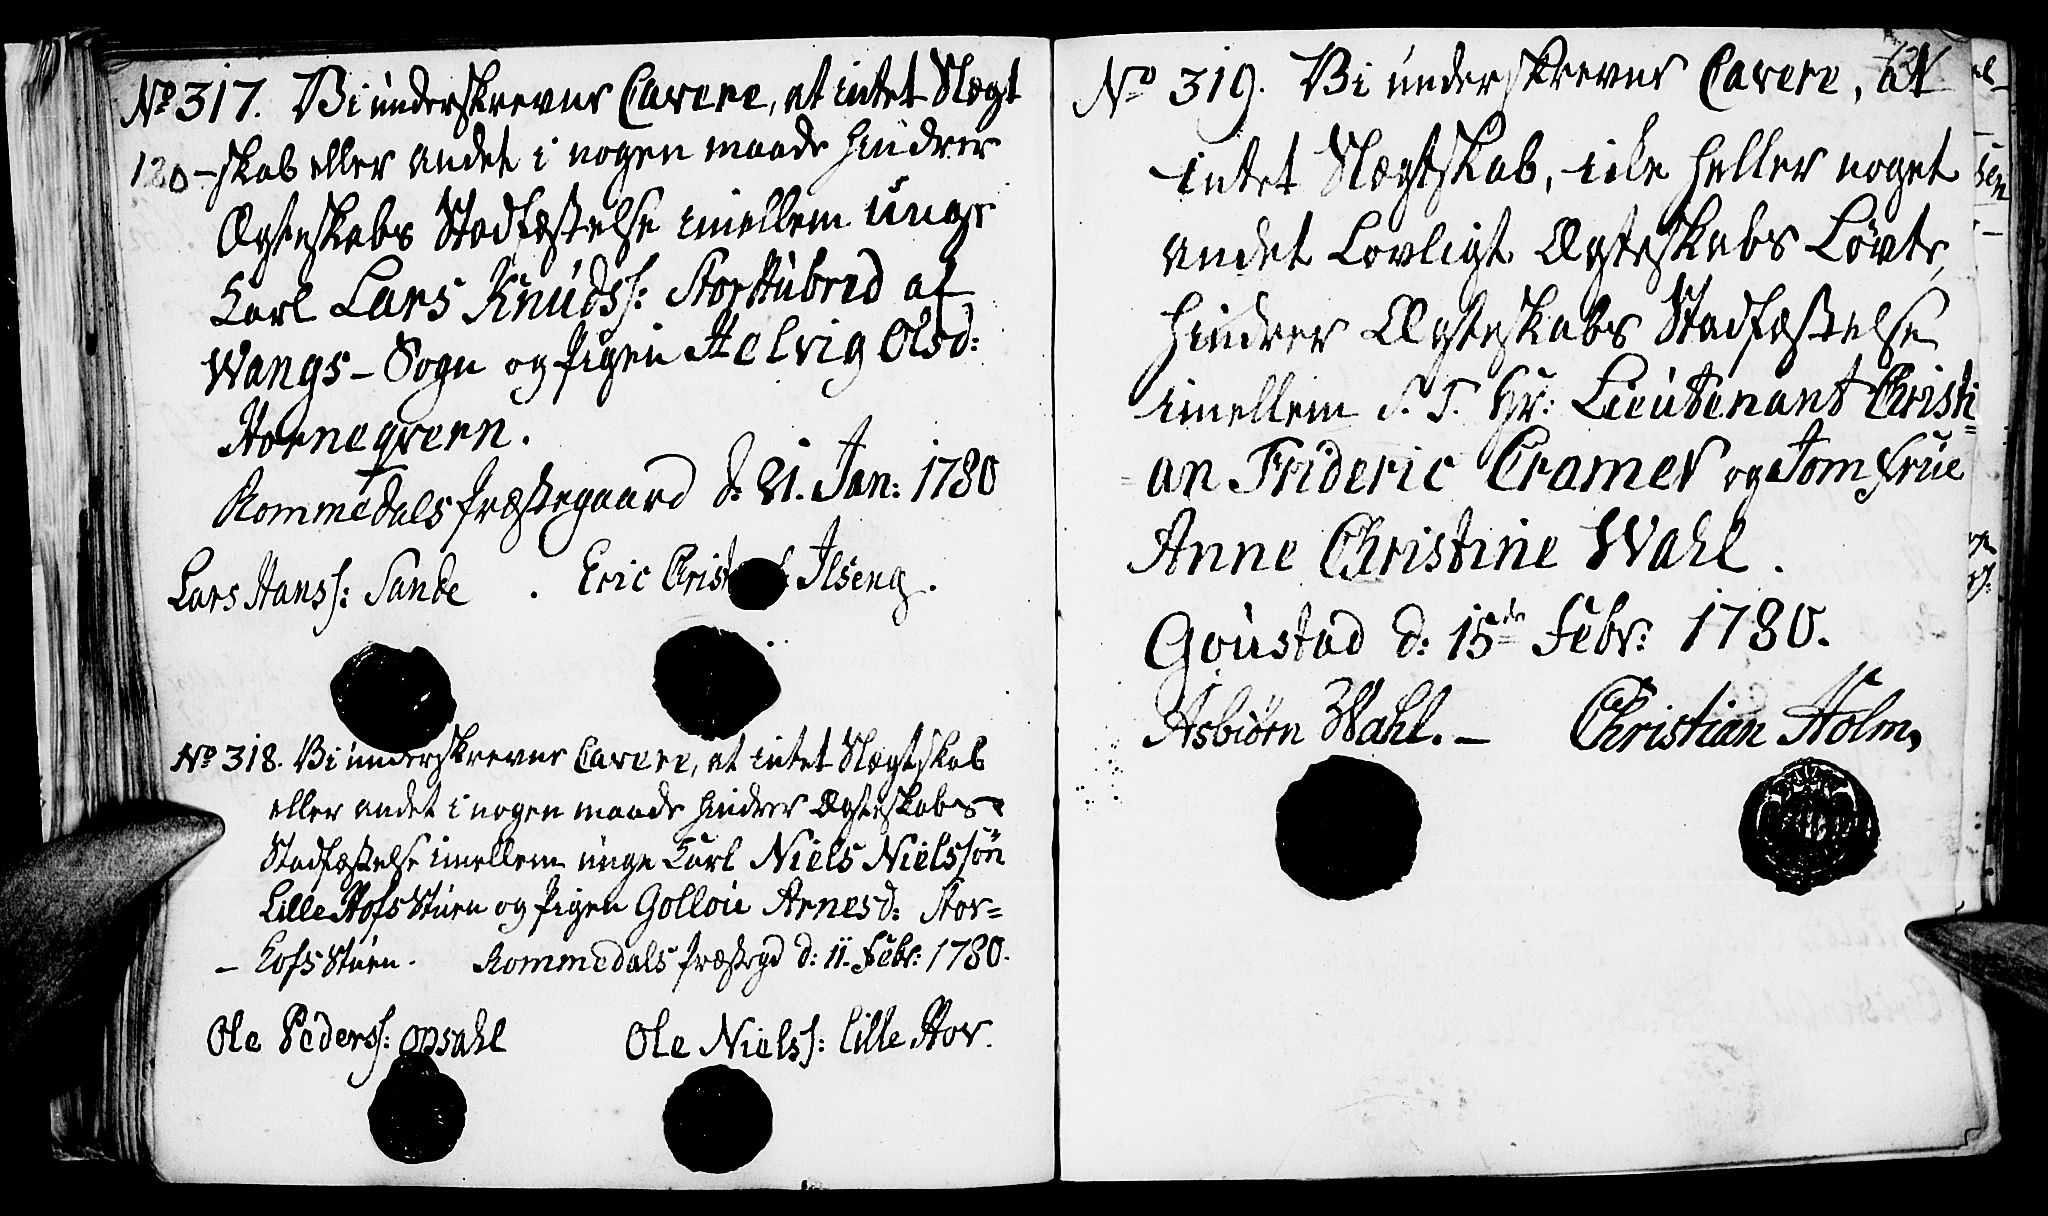 No 317. Vi underskrevne Cavere, at intet Slægt
120 -skab eller andet i nogen maade hindrer
Ægteskabs Stadfæstelse imellem unge
Karl Lars Knuds: Storhubred af
Wangs-Sogn og Pigen Helvig Olsd:
Horneqvern.
Rommedals Præstegaard d: 21. Jan: 1780
Lars Hans: Sande . Eric Christ Ilseng.
No 318. Vi underskrevne Cavere, at intet Slægtskab
eller andet i nogen maade hindrer Ægteskabs
Stadfæstelse imellem unge Karl Niels Nielssøn
Lille Hofs Stuen og Pigen Gollou Arnesd: Stor=
- Hofs Stuen. Rommedals Præstgd d: 11. Febr: 1780.
Ole Peders: Opsahl Ole Niels: lille Hov.
No 319. Vi underskrevne Cavere, at
intet Slægtskab, icke heller noget
andet Lovligt Ægteskabs Løvte
hindrer Ægteskabs Stadfæstelse
imellem S. T. Hr: Lieutenant Christi=
=an Frideric Cramer og Jomfrue
Anne Christine Wahl.
Goustad d: 15de Febr: 1780.
Asbiørn Wahl. - Christian Holm,